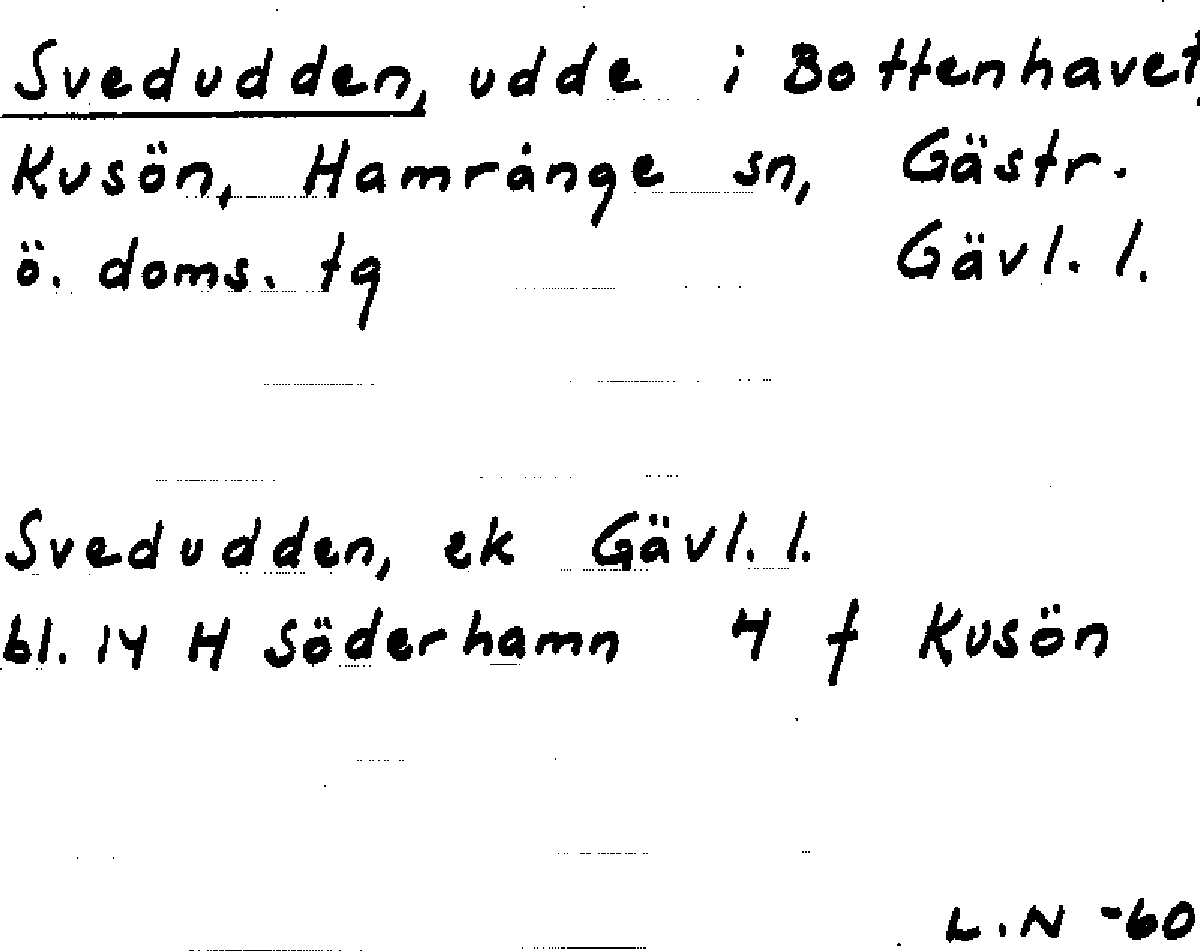 Svedudden, udde i Bottenhavet,
Kusön, Hamrånge sn, Gästr.
ö. doms. tg Gävl. l.
Svedudden, ek Gävl. l.
bl. 14 H Söderhamn 4 f Kusön
L.N -60